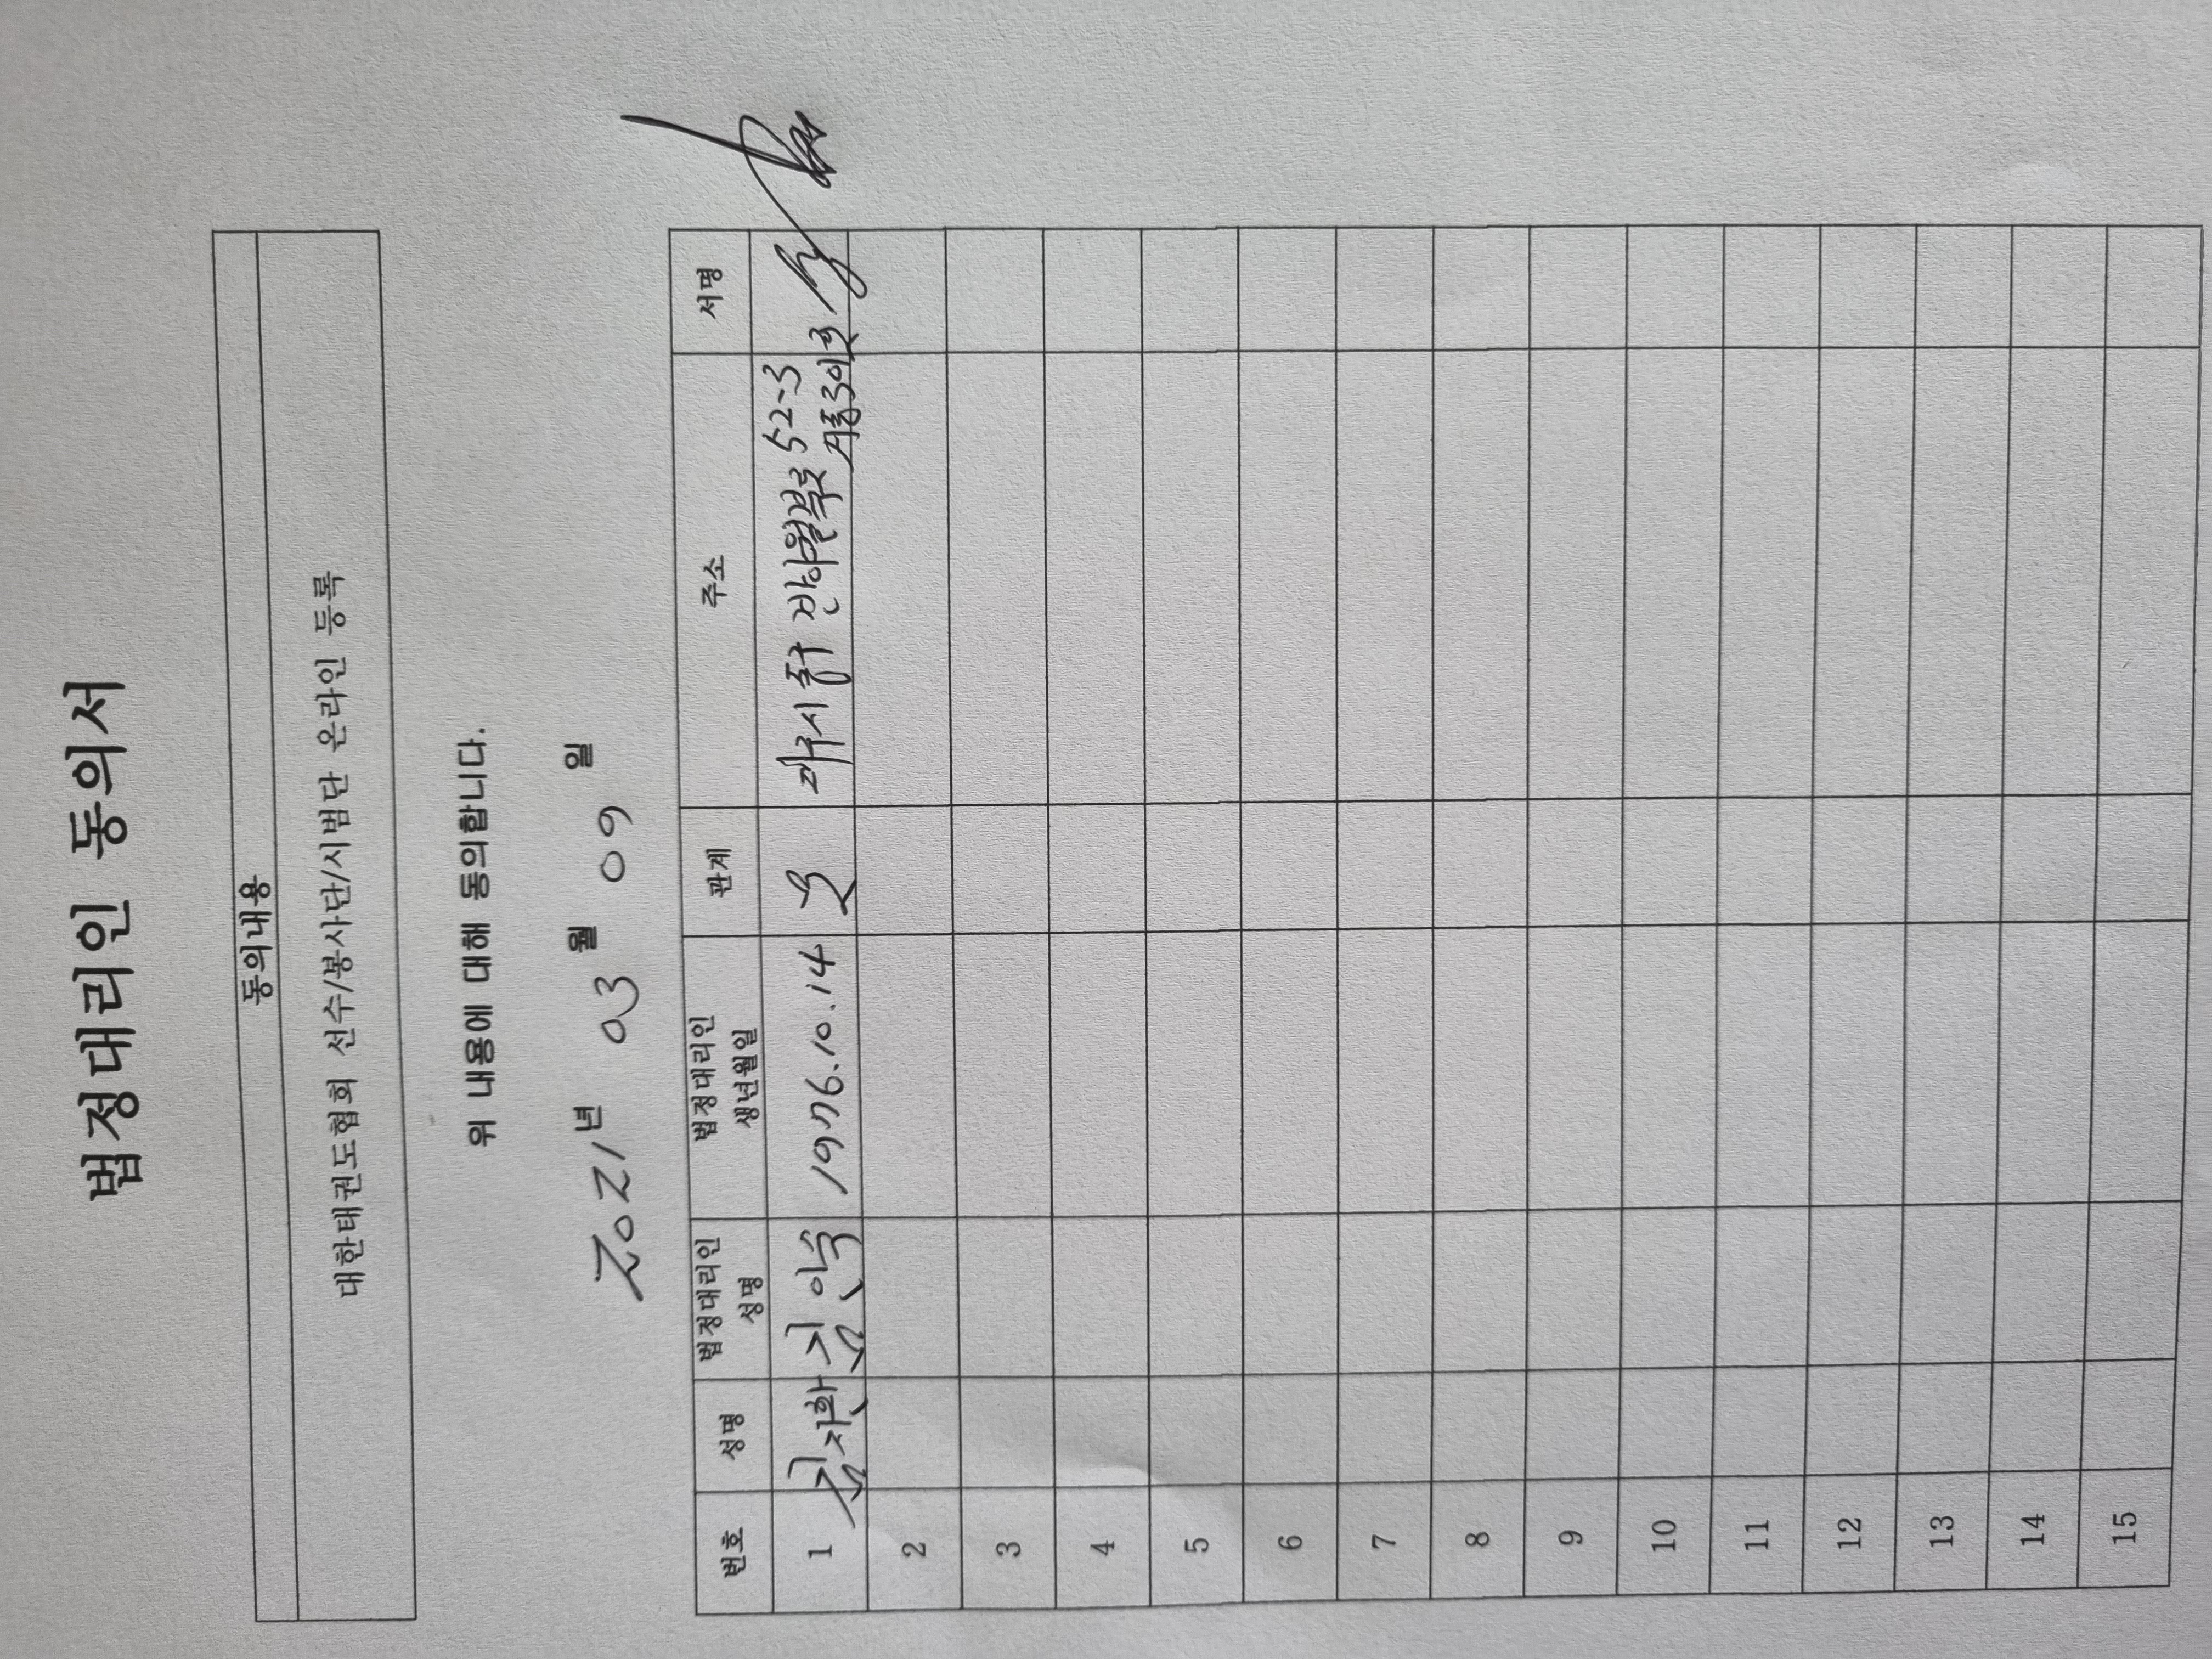 법정대리인 동의서
동의내용
대한태권도협회 선수/봉사단/시범단 온라인 등록
위 내용에 대해 동의합니다.
2021년 03월 09일
번호 성명 법정대리인 성명 법정대리인 생년월일 관계 주소 서명
1 김지환 김인숙 1976.10.14 모 시 중구 52-3
2
3
4
5
6
7
8
9
10
11
12
13
14
15